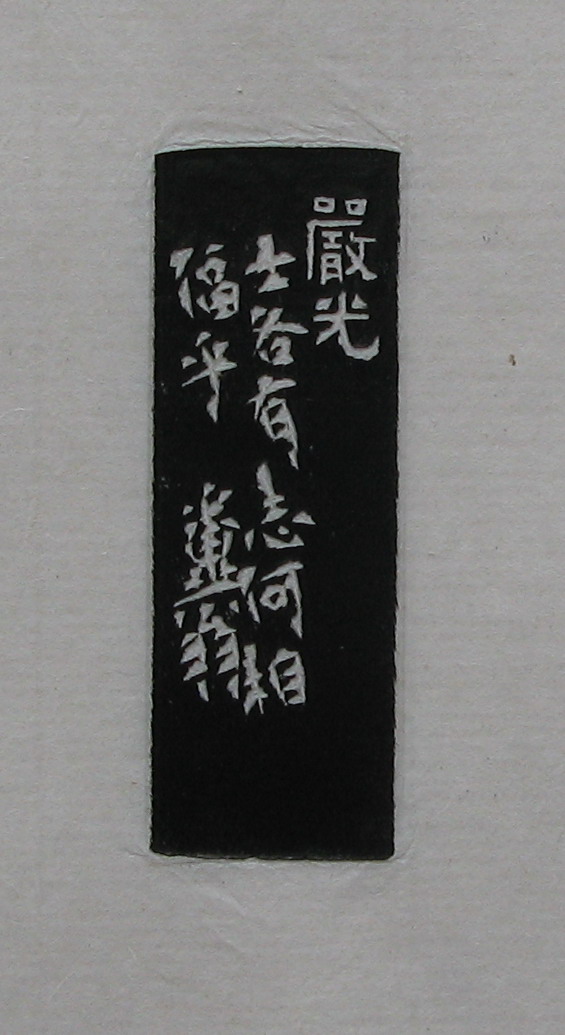 嚴光
士各有志何相
偪乎 糞翁